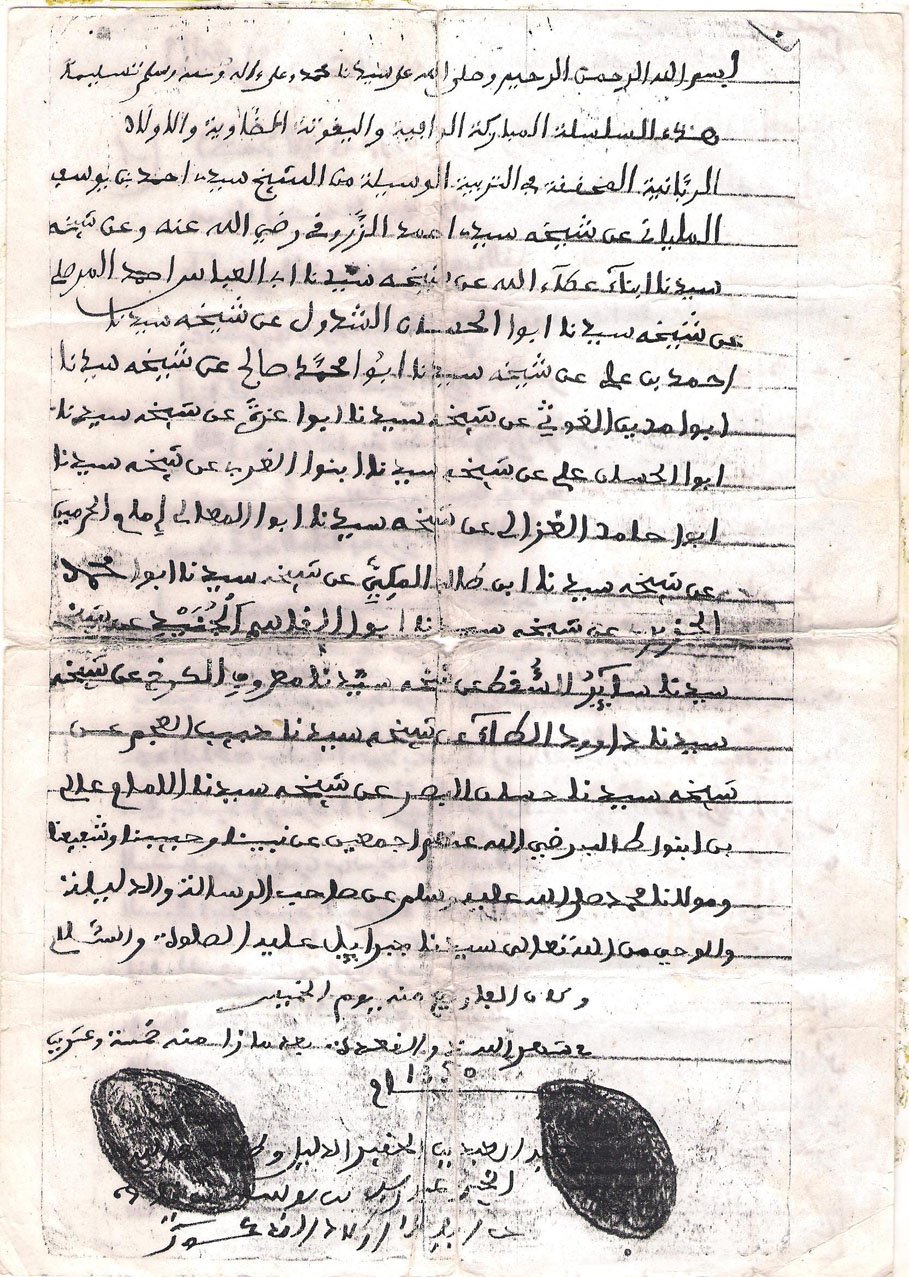 بسم الله الرحمن الرحيم وصلى الله على سيدنا محمد وعلى ءاله وصحبه وسلم تسليما
هذه السلسلة المباركة الراقية واليقوتة الخضاوية واللولاة
الربانية المخففة في التربية الوسيلة من الشيخ سيد احمد بن يوسف
الملياني عن شيخه سيد احمد الزروقي رضي الله عنه وعن شيخه
سيدنا ابناء عطاء الله عن شيخه سيدنا اب العباس احمد المرصي
عن شيخه سيدنا ابوا الحسان الشدولي عن شيخه سيدنا
احمد بن علي عن شيخه سيدنا ابوا محمد صالح عن شيخه سيدنا
ابوا مدين الغوثي عن شيخه سيدنا ابوا عزى عن شيخه سيدنا
ابوا الحسان علي عن شيخه سيدنا ابنوا الغرب عن شيخه سيدنا
ابوا حامد الغزالي عن شيخه سيدنا ابوا المعالي إمام الحرمين
عن شيخه سيدنا ابى طالب المكيي عن شيخه سيدنا ابوا محمد
عن شيخه سيدنا ابوا القاسم الجنيد عن شيخه
سيدنا السقطي عن شيخه سيدنا معروف الكرخي عن شيخه
سيدنا داوود الطاء عن شيخه سيدنا حبيب العجم عن
شيخه سيدنا حسان البصر عن شيخه سيدنا الامام علي
بن ابنوا طالب رضي الله عنهم اجمعين عن نبينا وحبيبنا وشفيعنا
ومولانا محمد صلى الله عليه وسلم عن صاحب الرسالة والدليلة
والوحي من الله تعالى سيدنا جبراييل عليه الصلوة والسلام
وكان الفاريغ منه يوم الخميس
شهر الله ذو القعدة بعد مازا منه خمسة وعشرين
عام
الحقير الدليل